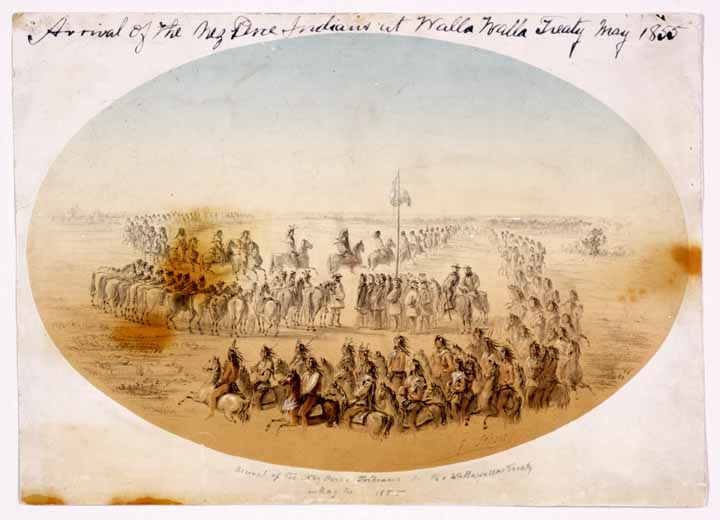 Arrival of the Nez Perce Indians at Walla Walla Treaty May 1855
Arrival of the Nez Perce Indians Wallawalla Treaty
in May 1855